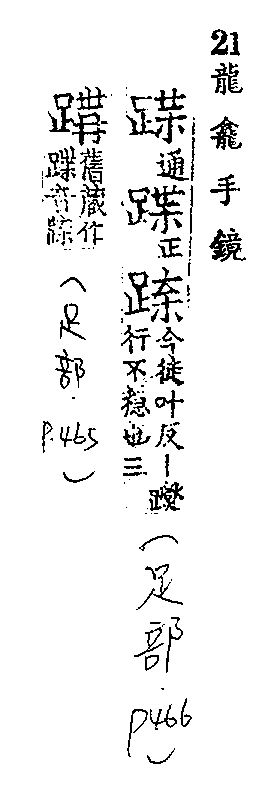 21龍龕手鏡
𨂪通蹀正𧿇今徒叶反丨躞行不穩也三(足部.p466)
舊藏作蹀音牒(足部.p.465)